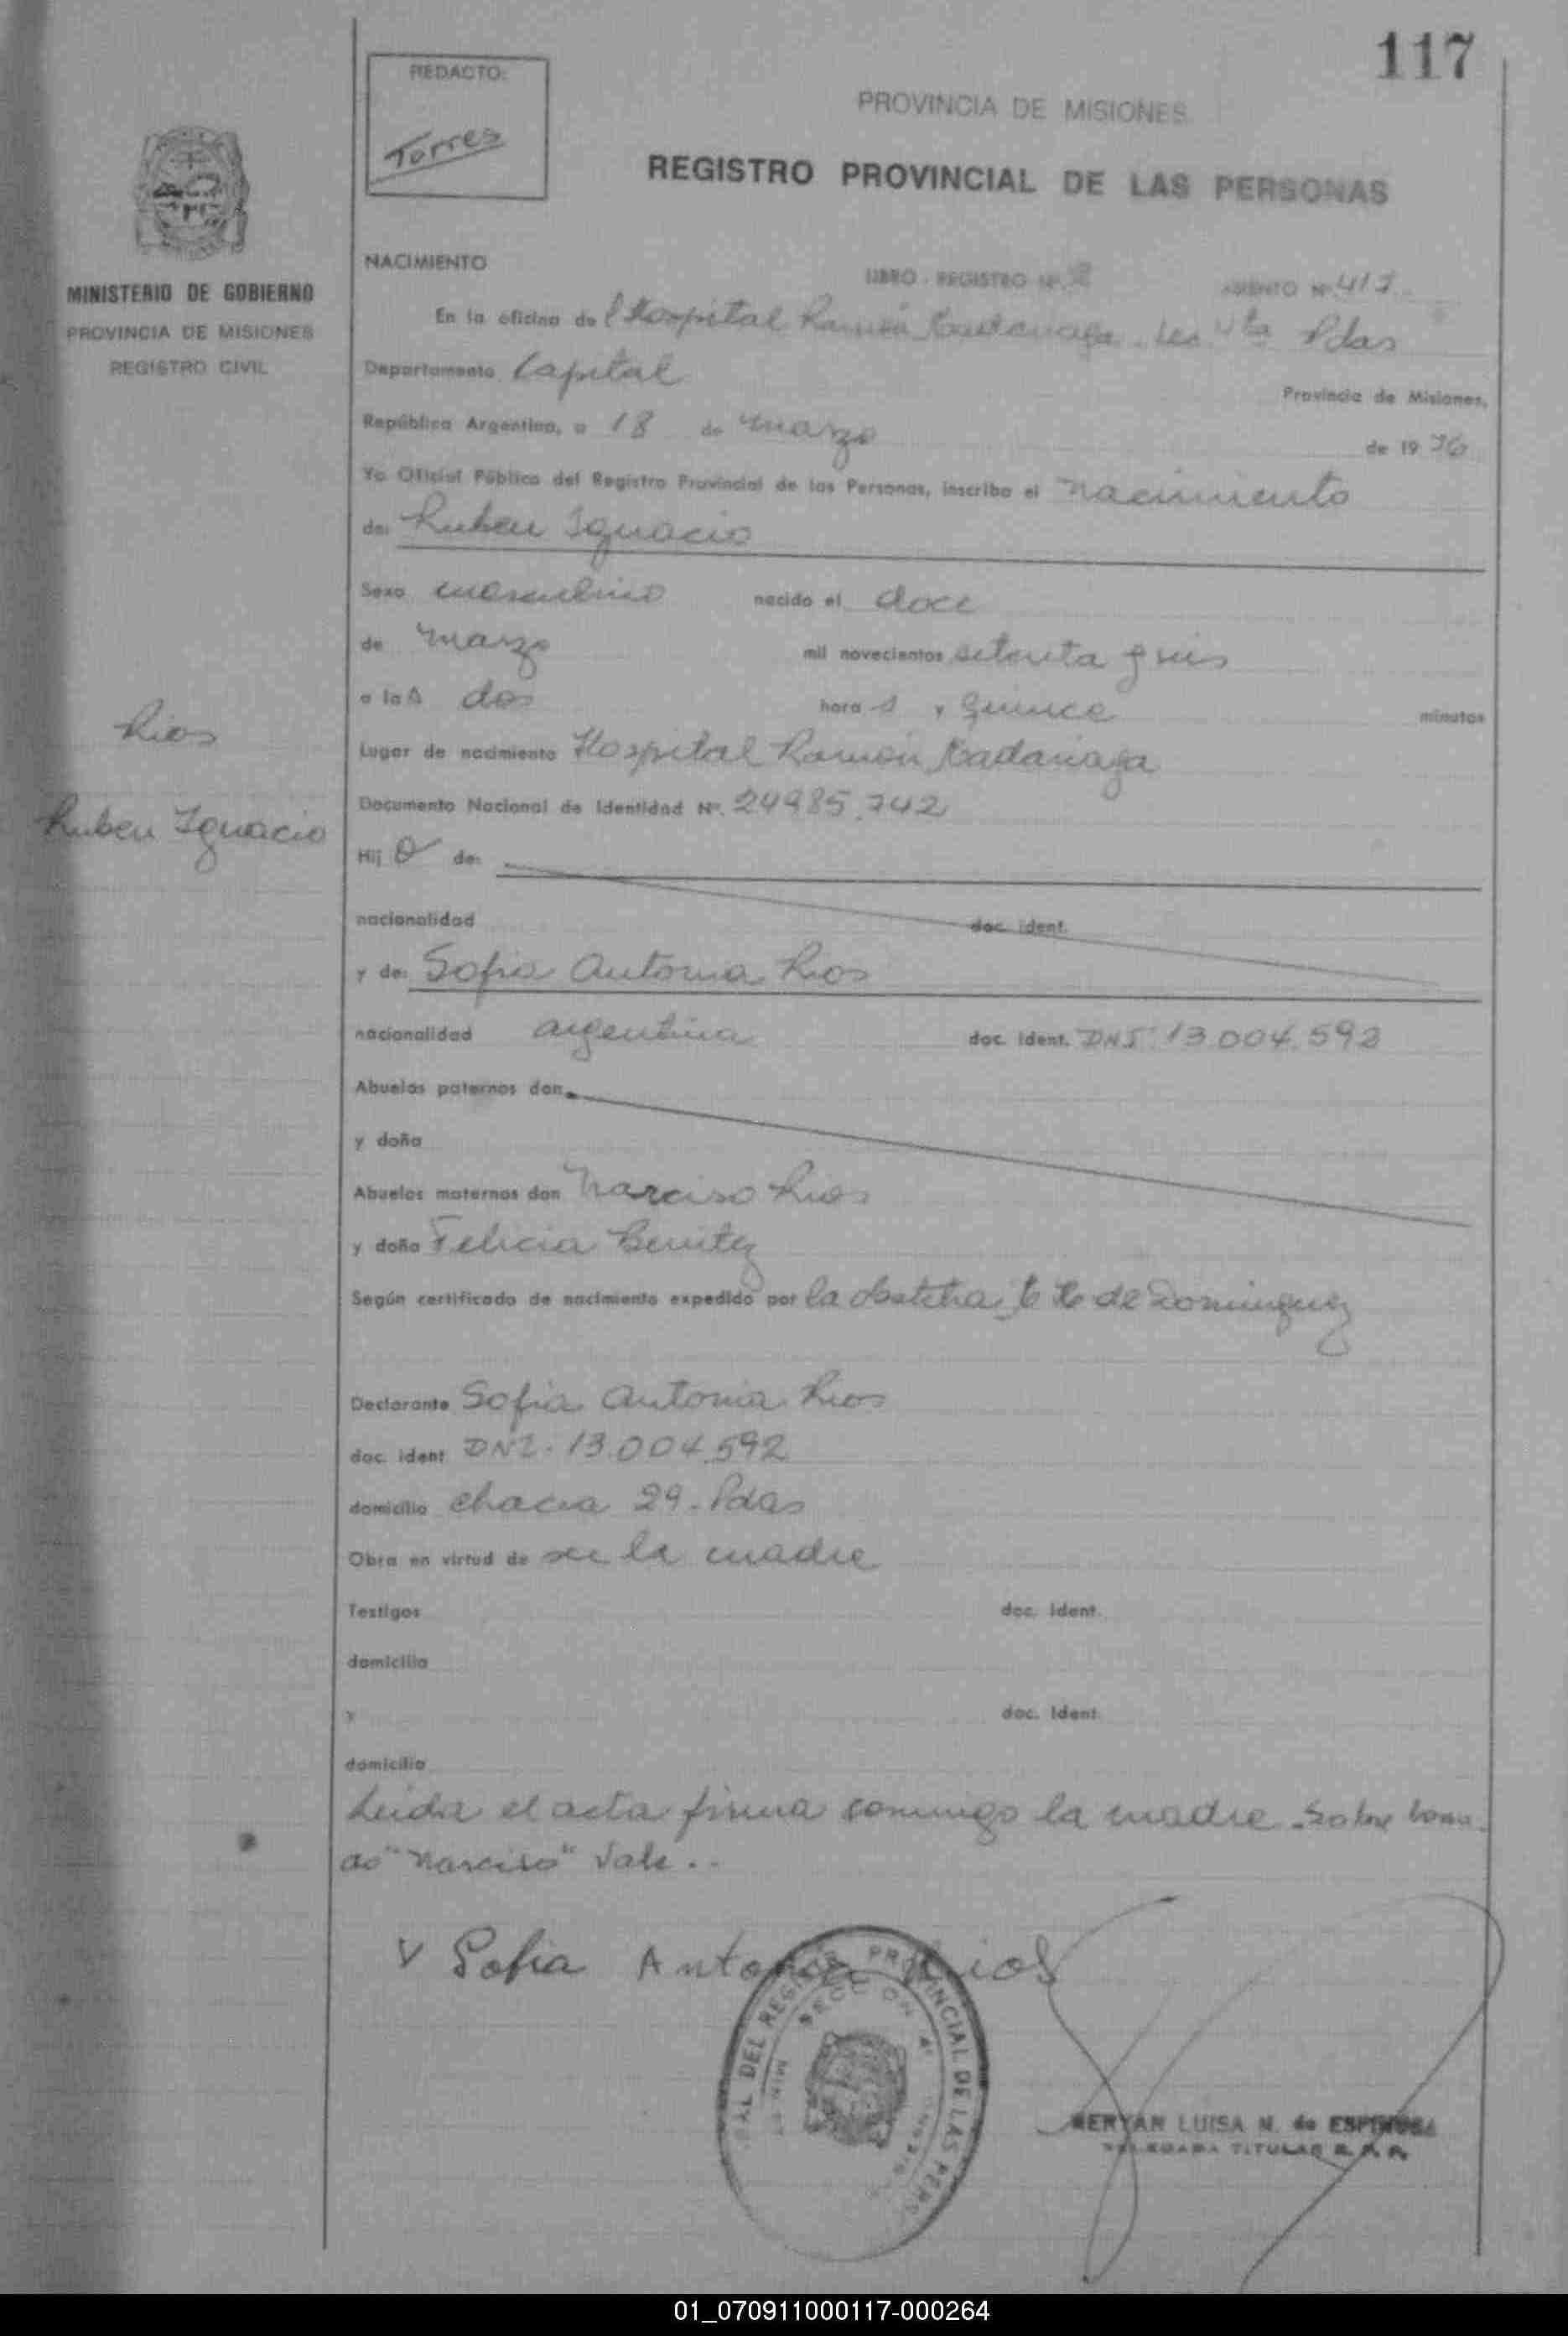 117
REDACTO:
Torres
PROVINCIA DE MISIONES
REGISTRO PROVINCIAL DE LAS PERSONAS
MINISTERIO DE GOBIERNO
PROVINCIA DE MISIONES
REGISTRO CIVIL
NACIMIENTO
LIBRO - REGISTRO Nº ASIENTO Nº
En la oficina del Hospital Ramón Madariaga Pdas
Departamento Capital
Provincia de Misiones,
República Argentina, a 18 de marzo de 1976
Yo Oficial Público del Registro Provincial de las Personas, inscribo el nacimiento
de: Ruben Ignacio
Sexo masculino nacido el doce
de marzo mil novecientos setenta y seis
a las dos hora s y quince minutos
Lugar de nacimiento Hospital Ramón Madariaga
Documento Nacional de Identidad Nº. 24985.742
Rios
Ruben Ignacio
Hijo de:
nacionalidad doc. ident.
y de: Sofia Antonia Rios
nacionalidad argentina doc. ident. DNI 13.004.592
Abuelos paternos don
y doña
Abuelos maternos don Narciso Rios
y doña Felicia Benitez
Según certificado de nacimiento expedido por la obstetra de Dominguez
Declarante Sofia Antonia Rios
doc. ident DNI - 13.004.592
domicilio chacra 29 - Pdas
Obra en virtud de ser la madre
Testigos doc. ident.
domicilio
y doc. ident.
domicilio
Leida el acta firma conmigo la madre. Sobre borra-
do "Narciso" Vale..
Sofia Antonia Rios
DEL REGISTRO PROVINCIAL DE LAS PERS
SECCION 4ª
LUISA N. de ESPINOSA
DELEGADA TITULAR R.P.P.
01_070911000117-000264